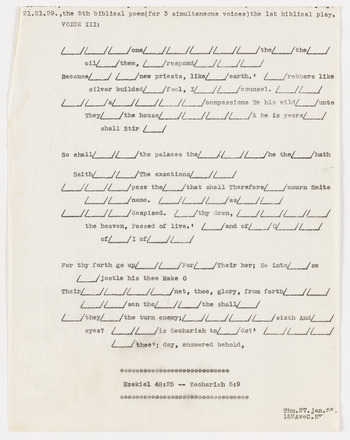 21.21.29., the 5th biblical poem(for 3 simultaneous voices)the 1st biblical play.
VOICE III:
/____/ /____/ /____/one/____/ /____/ /____/ /____/ /____/the/____/the/____/
oil/____/them, /____/respond/____/ /____/ /____/
Because/____/ /____/new priests, like/____/earth.' /____/robbers like
silver builded/____/fool, I/____/ /____/counsel. /____/ /____/
/____/ /____/a/____/ /____/ /____/ /____/ /____/compassions He his wild/____/unto
They/____/the house/____/ /____/ /____/ /____/A he is years/____/
shall Stir /____/
So shall/____/ /____/the palaces the/____/ /____/ /____/he the/____/hath
Saith/____/ /____/The exactions/____/ /____/
/____/ /____/ /____/pass the/____/that shall Therefore/____/mourn Smite
/____/ /____/name. /____/ /____/ /____/ /____/as/____/ /____/
/____/ /____/ /____/despised. /____/thy down, /____/ /____/ /____/ /____/
the heaven, Passed of live.' /____/and of/____/O/____/ /____/
of/____/I of/____/ /____/
For thy forth go up/____/ /____/For/____/Their her; He into/____/se
/____/jostle his thee Make O
Their/____/ /____/ /____/ /____/net, thee, glory, from forth/____/ /____/
/____/ /____/son the/____/the shall/____/
/____/they/____/the turm enemy;/____/ /____/ /____/ /____/sixth And/____/
eyes? /____/ /____/is Zechariah to/____/do?' /____/ /____/ /____/
/____/thee'; day, answered behold,
Ezekiel 48:25 -- Zechariah 5:9
Thu.27.Jan.
152AveC.NY